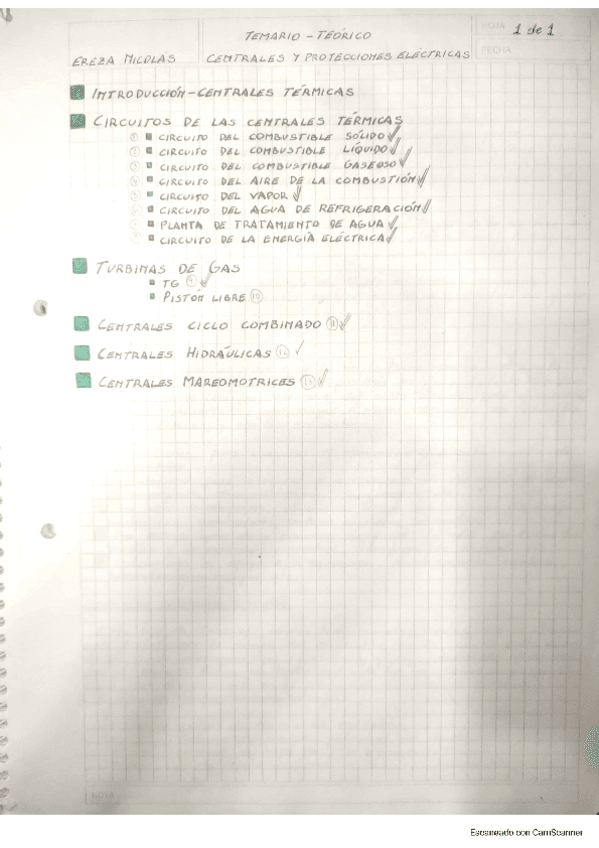 TEMARIO - TEÓRICO
HOJA 1 de 1
EREZA NICOLÁS
CENTRALES Y PROTECCIONES ELÉCTRICAS
FECHA
INTRODUCCIÓN - CENTRALES TÉRMICAS
CIRCUITOS DE LAS CENTRALES TÉRMICAS
① CIRCUITO DEL COMBUSTIBLE SÓLIDO
② CIRCUITO DEL COMBUSTIBLE LÍQUIDO
③ CIRCUITO DEL COMBUSTIBLE GASEOSO
④ CIRCUITO DEL AIRE DE LA COMBUSTIÓN
⑤ CIRCUITO DEL VAPOR
⑥ CIRCUITO DEL AGUA DE REFRIGERACIÓN
⑦ PLANTA DE TRATAMIENTO DE AGUA
CIRCUITO DE LA ENERGÍA ELÉCTRICA
TURBINAS DE GAS
TG ⑨
PISTÓN LIBRE ⑩
CENTRALES CICLO COMBINADO ⑪
CENTRALES HIDRÁULICAS ⑫
CENTRALES MAREOMOTRICES ⑬
NOTA
Escaneado con CamScanner